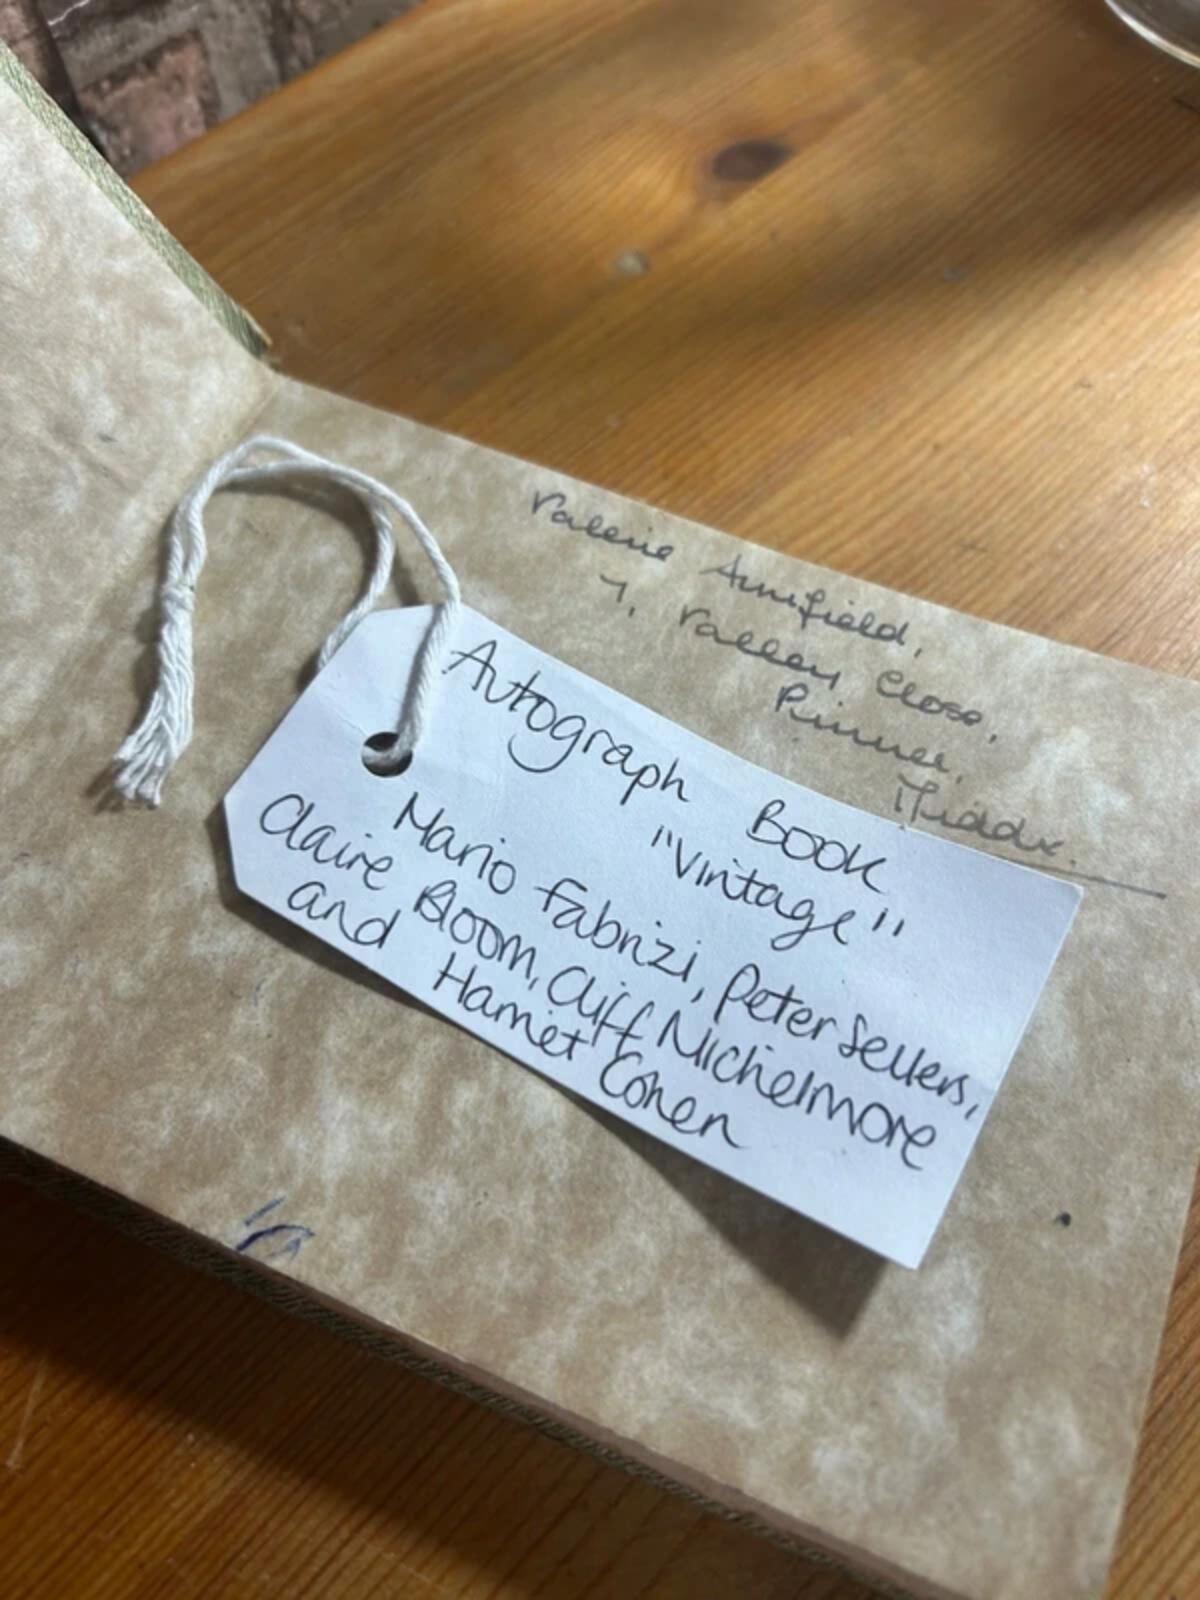 Valerie Armfield,
7, Valley Close,
Pinner,
Middx.
Autograph Book
"Vintage"
Mario Fabrizi, Peter Sellers,
Claire Bloom, Cliff Michelmore
and Harriet Cohen